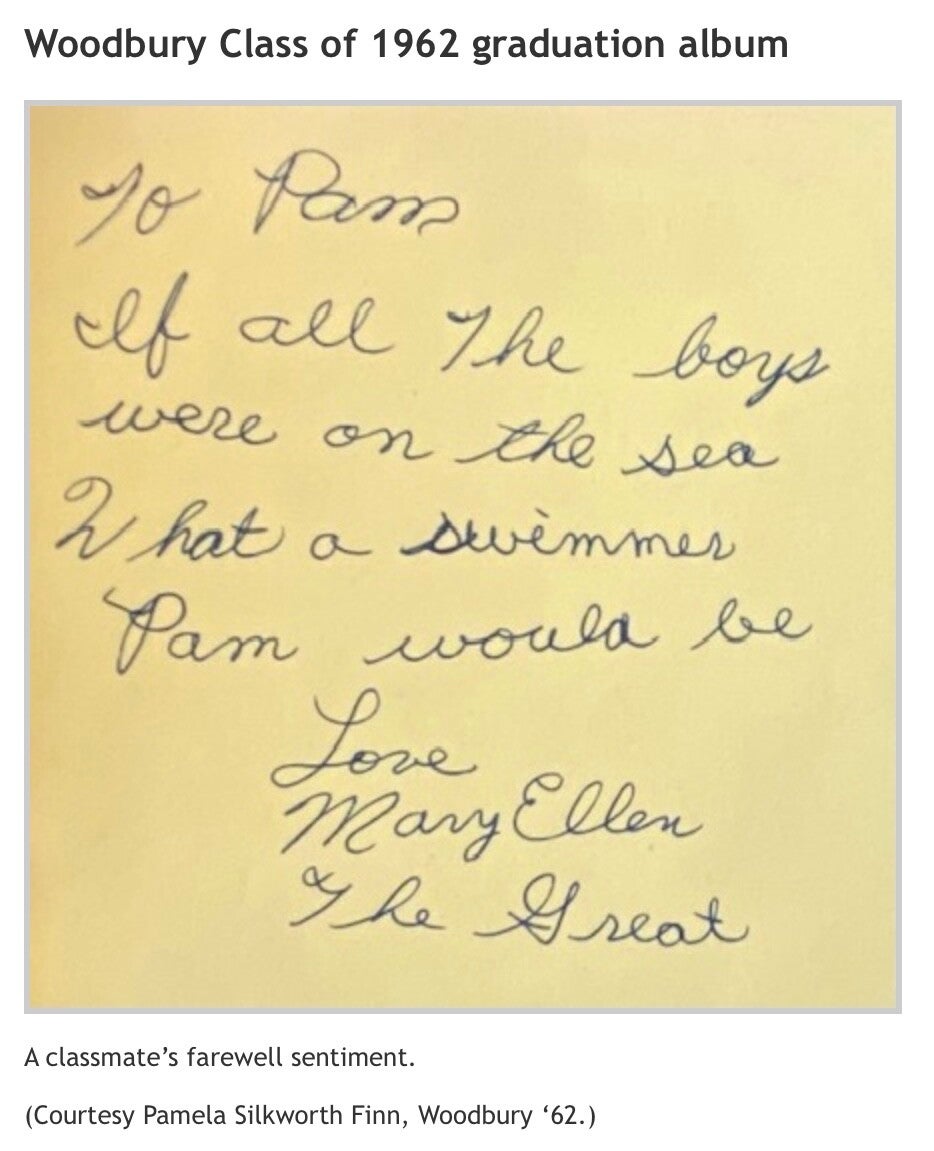 Woodbury Class of 1962 graduation album
To Pam
If all The boys
were on the sea
What a swimmer
Pam would be
Love
Mary Ellen
The Great
A classmate’s farewell sentiment.
(Courtesy Pamela Silkworth Finn, Woodbury ‘62.)